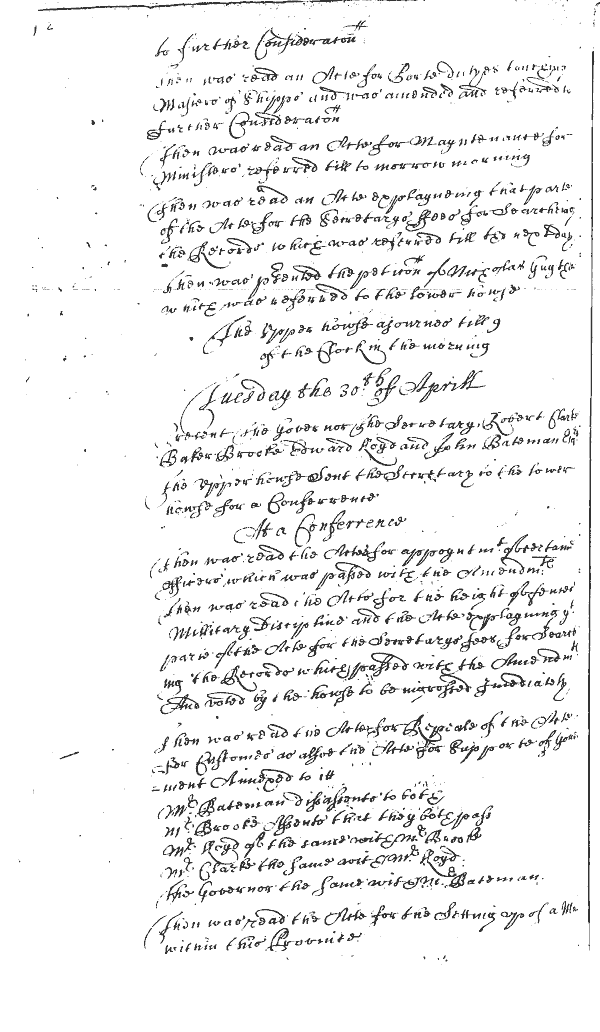 to further Consideraton
Then was read an Acte for Porte dutyes
Masters of Shipps and was amended and referred to
further Consideraton
Then was read an Acte for Mayntenance for
Ministers referred till to morrow morning
Then was read an Acte explayneing that parte
of the Acte for the Secretarys ffees for Searcheing
the Records which was referred till the next day.
Then was pres̃ented the peticõn of Nicholas
which was referred to the lower howse
The Vpper howse ajournes till 9
of the Clock in the morning
Tuesday the 30th of Aprill
Present the Governor the Secretary, Robert Clarke
Baker Brooke Edward Lloyd and John Bateman Esqrs
the vpper howse Sent the Secretary to the lower
howse for a Conferrence
At a Conferrence
Then was read the Acte for appoyntmt of certaine
Officers which was passed with the Amendmts
Then was read the Acte for the height of fences
Millitary Discipline and the Acte explayning yt
parte of the Acte for the Secretarys fees for Search
ing the Records which passed with the Amendmts
And voted by the house to be ingrossed Imediately
Then was read the Acte for Repeale of the Acte
for Customes as alsoe the Acte for Supporte of Govern
=ment Annexed to itt
Mr Bateman dissassents to both
Mr Brooke Assents that they both pass
Mr Lloyd the same with Mr Brooke
Mr Clarke the same with Mr Lloyd
the Governor the same with Mr Bateman.
Then was read the Acte for the Setting vp of a
within this Province